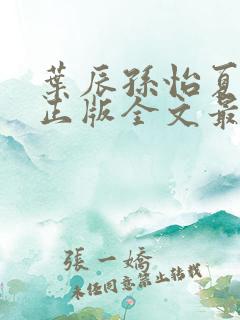 葉辰孫怡夏
正版全文最
張一嬌
未經同意禁止轉載